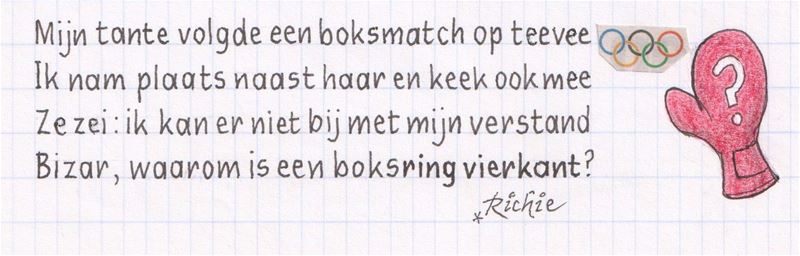 Mijn tante volgde een boksmatch op teevee
Ik nam plaats naast haar en keek ook mee
Ze zei: ik kan er niet bij met mijn verstand
Bizar, waarom is een boksring vierkant?
*Richie
?